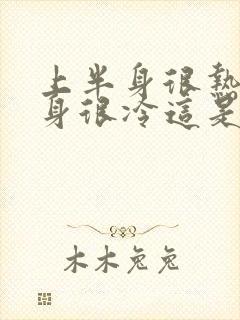 上半身很熱
身很冷這是
木木兔兔